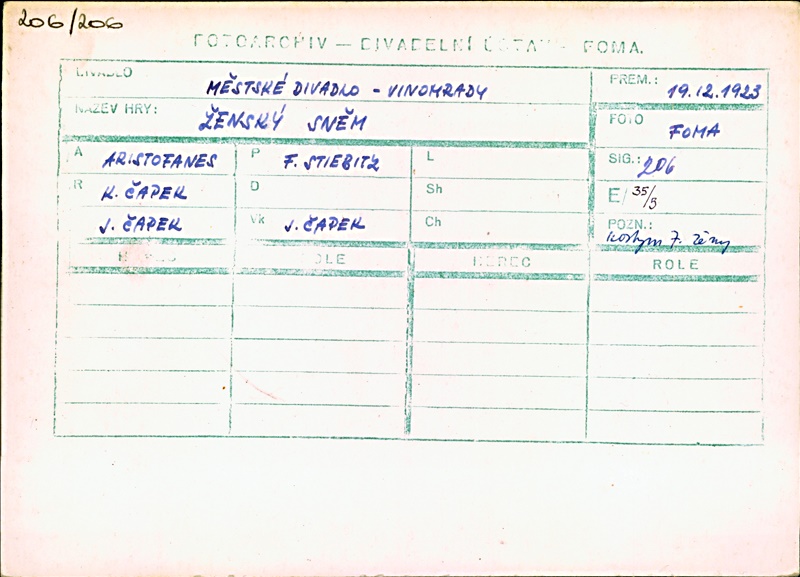 206/206
FOTOARCHIV — DIVADELNÍ ÚSTAV - FOMA.
DIVADLO MĚSTSKÉ DIVADLO - VINOHRADY PREM.: 19.12.1923
NÁZEV HRY: ŽENSKÝ SNĚM FOTO FOMA
A ARISTOFANES P F. STIEBITZ L SIG.: 206
R K. ČAPEK D Sh E/ 35/5
J. ČAPEK Vk J. ČAPEK Ch POZN.: kostym
HEREC ROLE HEREC ROLE